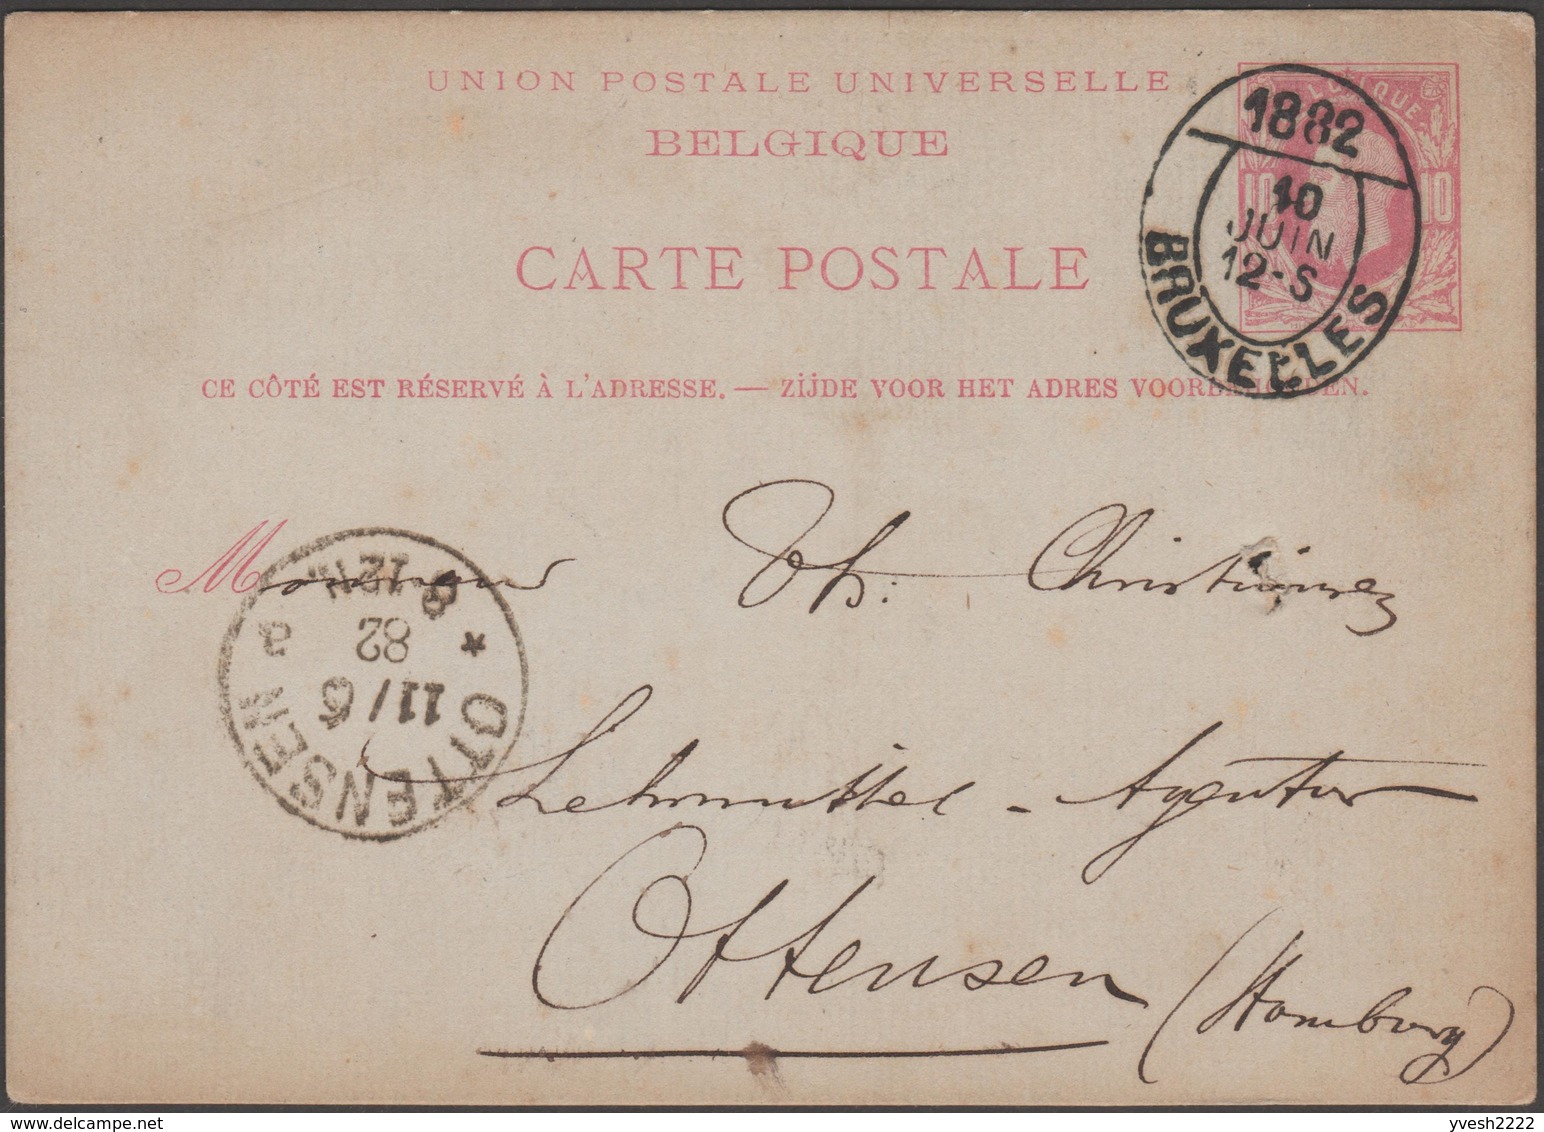 UNION POSTALE UNIVERSELLE
BELGIQUE
CARTE POSTALE
10 10
1882
10
JUIN
12-S
BRUXELLES
CE CÔTÉ EST RÉSERVÉ À L'ADRESSE. — ZIJDE VOOR HET ADRES VOORBEHOUDEN.
Monsieur Th: Christiansen
Lehrmittel - Agentur
Ottensen (Hamburg)
OTTENSEN
11/6
82
8-12N.
a
delcampe.net
yvesh2222